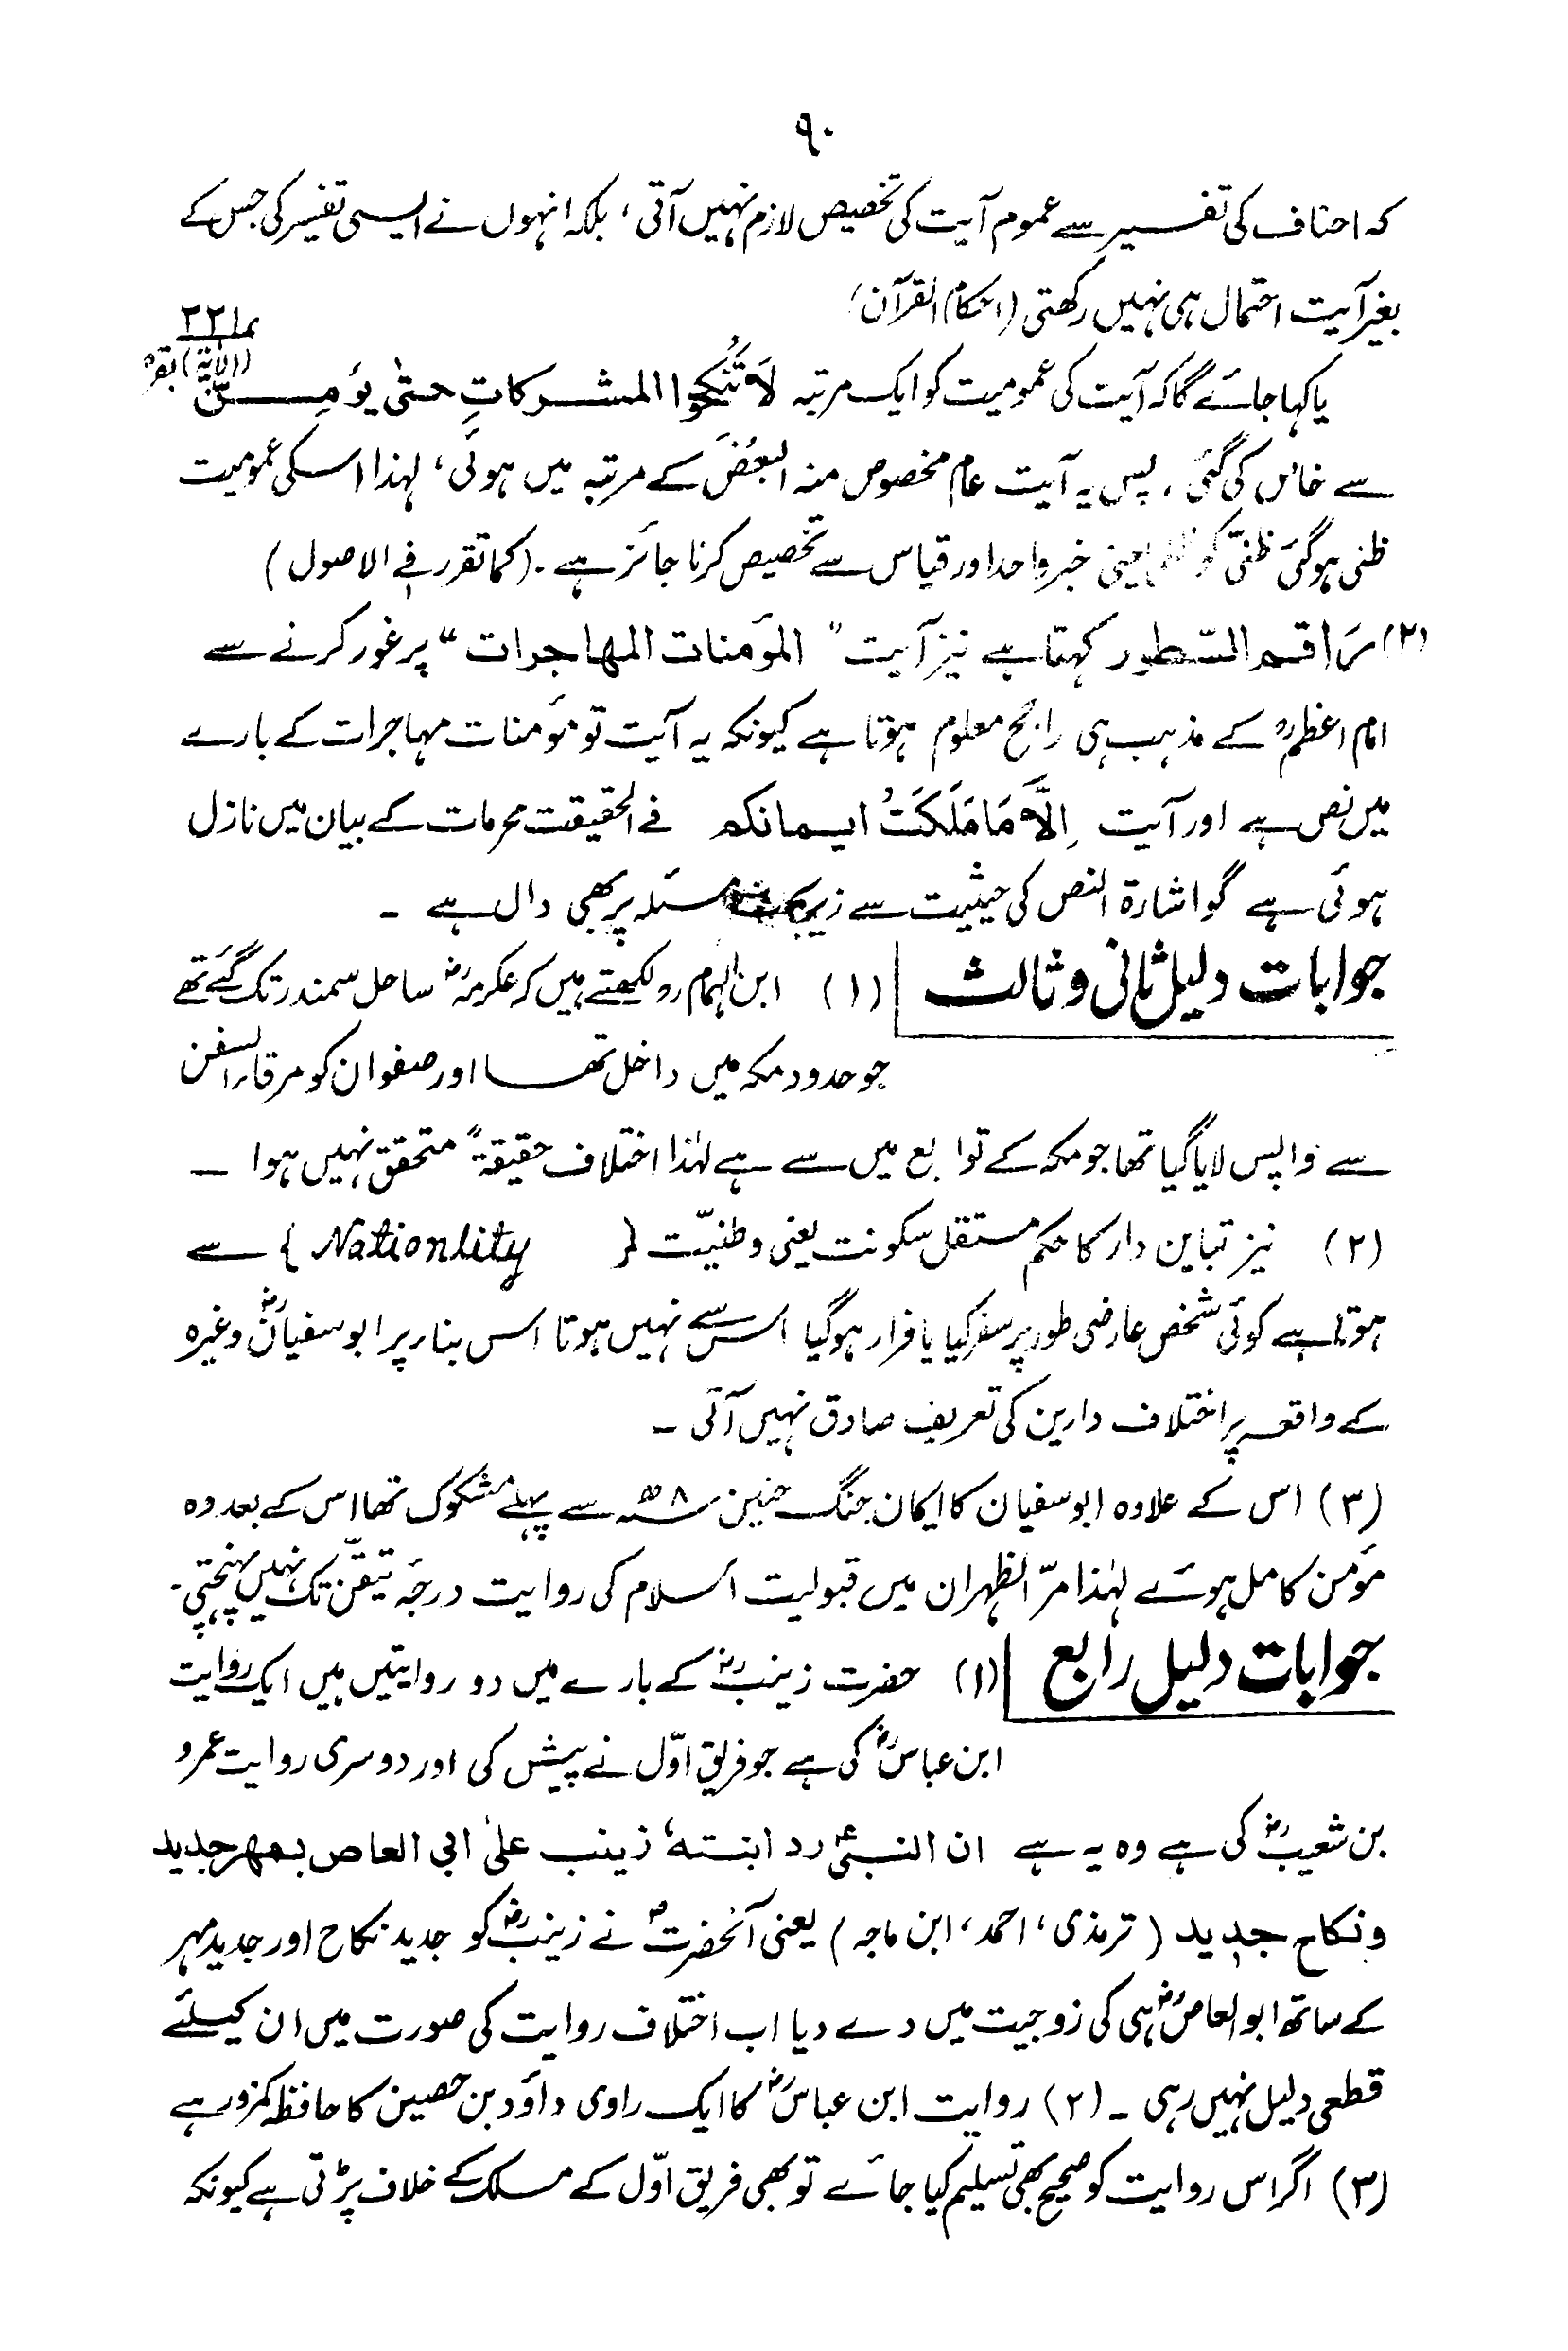 ۹۰
کہ احناف کی تفسیر سے عموم آیت کی تخصیص لازم نہیں آتی، بلکہ انہوں نے ایسی تفسیر کی جس کے
بغیر آیت احتمال ہی نہیں رکھتی (احکام القرآن)
یا کہا جائے گا کہ آیت کی عمومیت کو ایک مرتبہ لَا تُنْكِحُوا المشركاتِ حتىٰ يؤمِنَّ (الآیۃ) بقرہ ۲۲۱
سے خاص کی گئی، پس یہ آیت عام مخصوص منہ البعض کے مرتبہ میں ہوئی، لہذا اسکی عمومیت
ظنی ہوگئی ظنیّ کو یعنی خبر واحد اور قیاس سے تخصیص کرنا جائز ہے۔ (کما تقرر فے الاصول)
(۲) رَاقم السّطور کہتا ہے نیز آیت "المؤمنات المهاجرات" پر غور کرنے سے
امام اعظمؒ کے مذہب ہی راجح معلوم ہوتا ہے کیونکہ یہ آیت تو مؤمنات مہاجرات کے بارے
میں نص ہے اور آیت اِلَّا مَا مَلَكَتْ ايمانكم فے الحقیقت محرمات کے بیان میں نازل
ہوئی ہے گو اشارۃ النص کی حیثیت سے زیربحث مسئلہ پر بھی دال ہے ۔
جوابات دلیل ثانی وثالث (۱) ابن الہمامؒ لکھتے ہیں کہ عکرمہؓ ساحل سمندر تک گئے تھے
جو حدود مکہ میں داخل تھا اور صفوان کو مرقاۃ السفن
سے واپس لایا گیا تھا جو مکہ کے توابع میں سے ہے لہٰذا اختلاف حقیقۃً متحقق نہیں ہوا ۔
(۲) نیز تباین دار کا حکم مستقل سکونت یعنی وطنیّت { Nationlity } سے
ہوتا ہے کوئی شخص عارضی طور پر سفر کیا یا فرار ہوگیا اس سے نہیں ہوتا اس بناء پر ابوسفیانؓ وغیرہ
کے واقعہ پر اختلاف دارین کی تعریف صادق نہیں آتی ۔
(۳) اس کے علاوہ ابوسفیان کا ایمان جنگ حنین ۸ھ سے پہلے مشکوک تھا اس کے بعد وہ
مؤمن کامل ہوئے لہٰذا مرّ الظہران میں قبولیت اسلام کی روایت درجۂ تیقّن تک نہیں پہنچتی ۔
جوابات دلیل رابع (۱) حضرت زینبؓ کے بارے میں دو روایتیں ہیں ایک روایت
ابن عباسؓ کی ہے جو فریق اوّل نے پیش کی اور دوسری روایت عمرو
بن شعیبؓ کی ہے وہ یہ ہے ان النبیؐ رد ابنتہٗ زینب علیٰ ابی العاص بمهر جدید
ونکاح جدید (ترمذی، احمد، ابن ماجہ) یعنی آنحضرتؐ نے زینبؓ کو جدید نکاح اور جدید مہر
کے ساتھ ابوالعاصؓ ہی کی زوجیت میں دے دیا اب اختلاف روایت کی صورت میں ان کیلئے
قطعی دلیل نہیں رہی ۔ (۲) روایت ابن عباسؓ کا ایک راوی داؤد بن حصین کا حافظہ کمزور ہے
(۳) اگر اس روایت کو صحیح بھی تسلیم کیا جائے تو بھی فریق اوّل کے مسلک کے خلاف پڑتی ہے کیونکہ